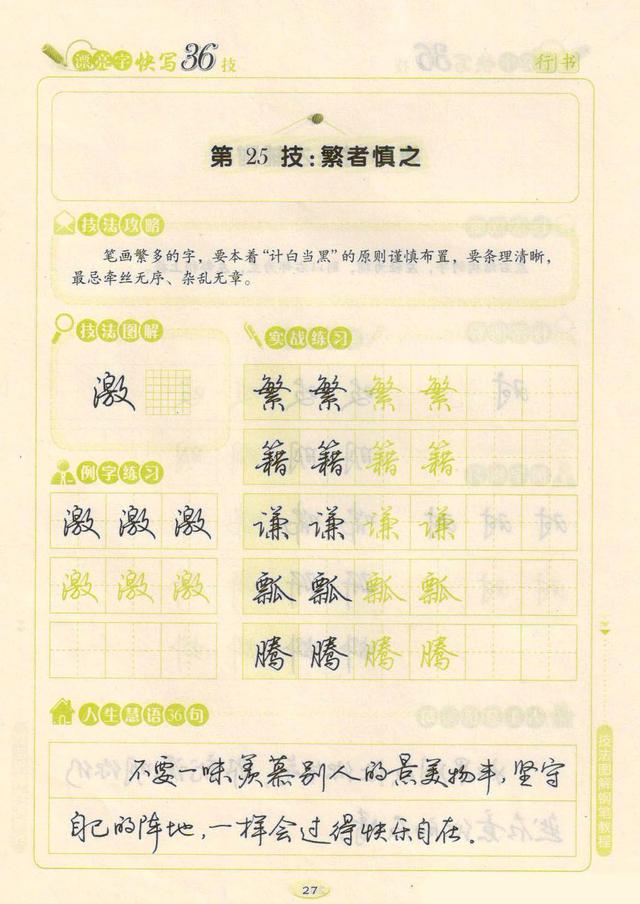 漂亮字快写36技
行书
第25技：繁者慎之
技法攻略
笔画繁多的字，要本着“计白当黑”的原则谨慎布置，要条理清晰，
最忌牵丝无序、杂乱无章。
技法图解
激
实战练习
繁 繁 繁 繁
籍 籍 籍 籍
谦 谦 谦 谦
瓢 瓢 瓢 瓢
腾 腾 腾 腾
例字练习
激 激 激
激 激 激
人生慧语36句
不要一味羡慕别人的景美物丰，坚守
自己的阵地，一样会过得快乐自在。
技法图解钢笔教程
27